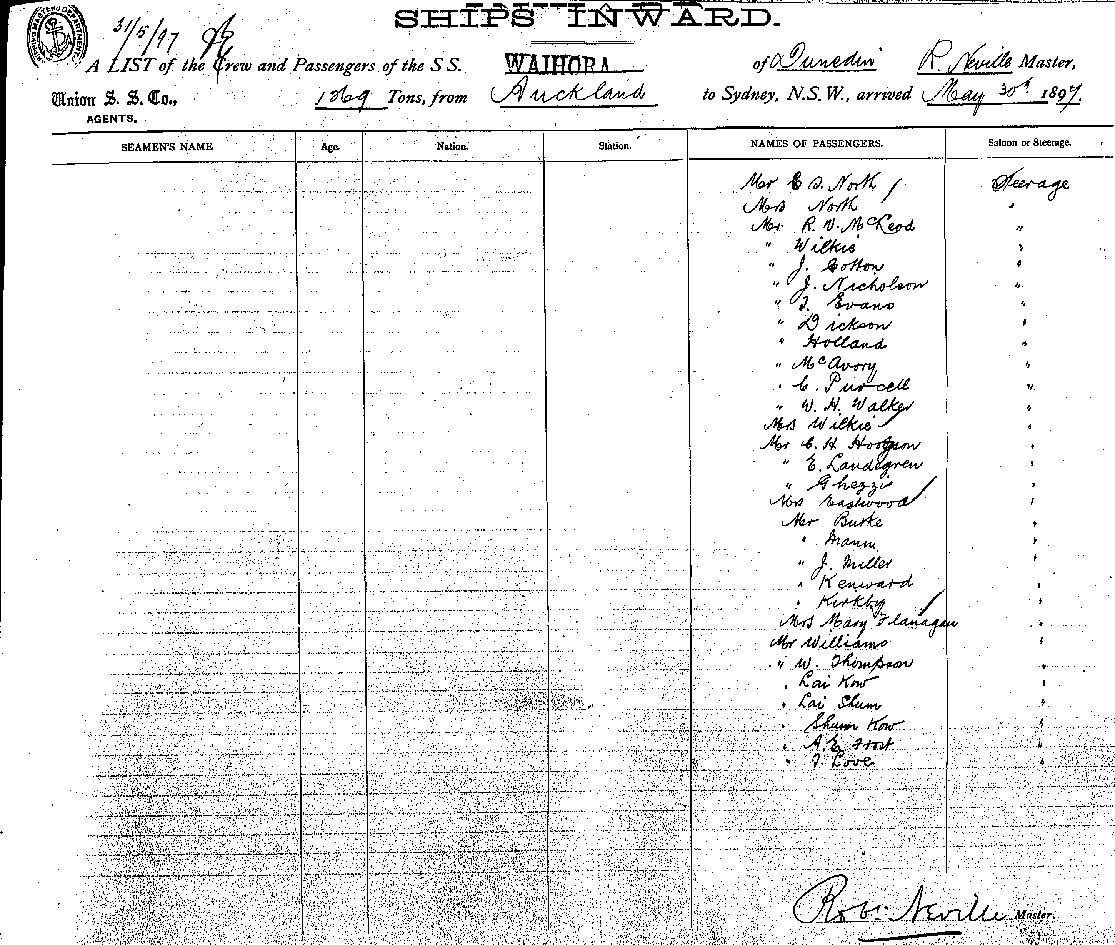 SHIPS INWARD.
31/5/97
A LIST of the Crew and Passengers of the S S. WAIHORA of Dunedin R. Neville Master,
Union S. S. Co., 1269 Tons, from Auckland to Sydney, N.S.W., arrived May 30th 1897.
AGENTS.
SEAMEN'S NAME Age. Nation. Station. NAMES OF PASSENGERS. Saloon or Steerage.
Mr E S. North Steerage
Mrs North "
Mr R. W. McLeod "
" Wilkie "
" J. Cotton "
" J. Nicholson "
" T. Evans "
" Dickson "
" Holland "
" McAvory "
" C. Purcell "
" W. H. Walker "
Mrs Wilkie "
Mr C. H. Hodgson "
" E. Landgren "
" Ghezzi "
Mrs Eastwood "
Mr Burke "
" Mann "
" J. Miller "
" Kenward "
" Kirkby "
Mrs Mary Flanagan "
Mr Williams "
" W. Thompson "
" Lai Kow "
" Lai Shum "
" Shum Kow "
" A. E. Frost "
" T Love "
Robt. Neville Master.